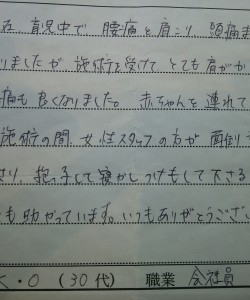 在、育児中で 腰痛と肩こり、頭痛ま
りましたが 施術を受けて とても肩がか
痛も良くなりました。赤ちゃんを連れて
施術の間、女性スタッフの方が 面倒
さり、抱っ子して寝かしつけもして下さる
も助かっています。いつもありがとうござい
・O (30代) 職業 会社員